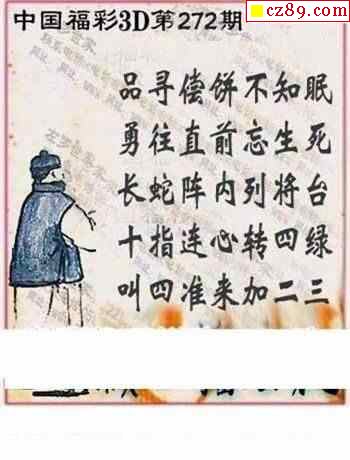 cz89.com
中国福彩3D第272期
品寻偿饼不知眠
勇往直前忘生死
长蛇阵内列将台
十指连心转四绿
叫四准来加二三